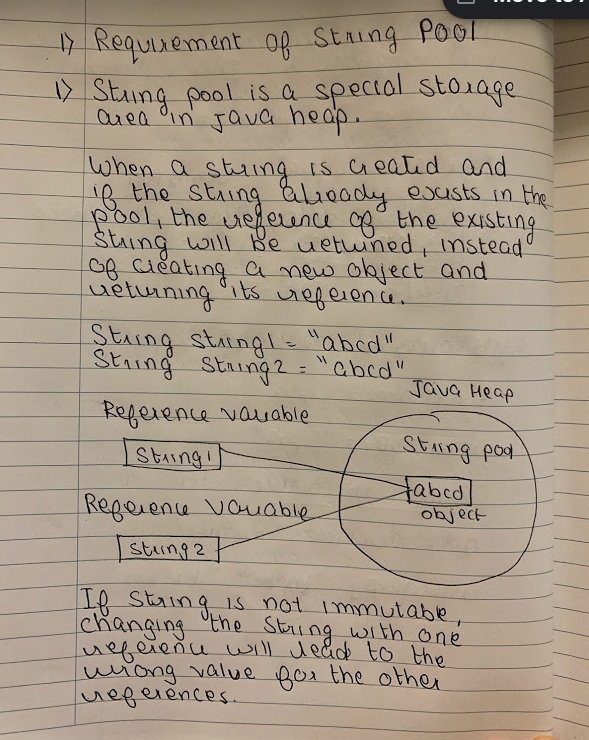 1) Requirement of String Pool
1) String pool is a special storage
area in Java heap.
When a string is created and
if the string already exists in the
pool, the reference of the existing
string will be returned, instead
of creating a new object and
returning its reference.
String string1 = "abcd"
String String2 = "abcd"
Java Heap
Reference variable
String pool
String1
abcd
Reference variable
object
string2
If string is not immutable,
changing the string with one
reference will lead to the
wrong value for the other
references.